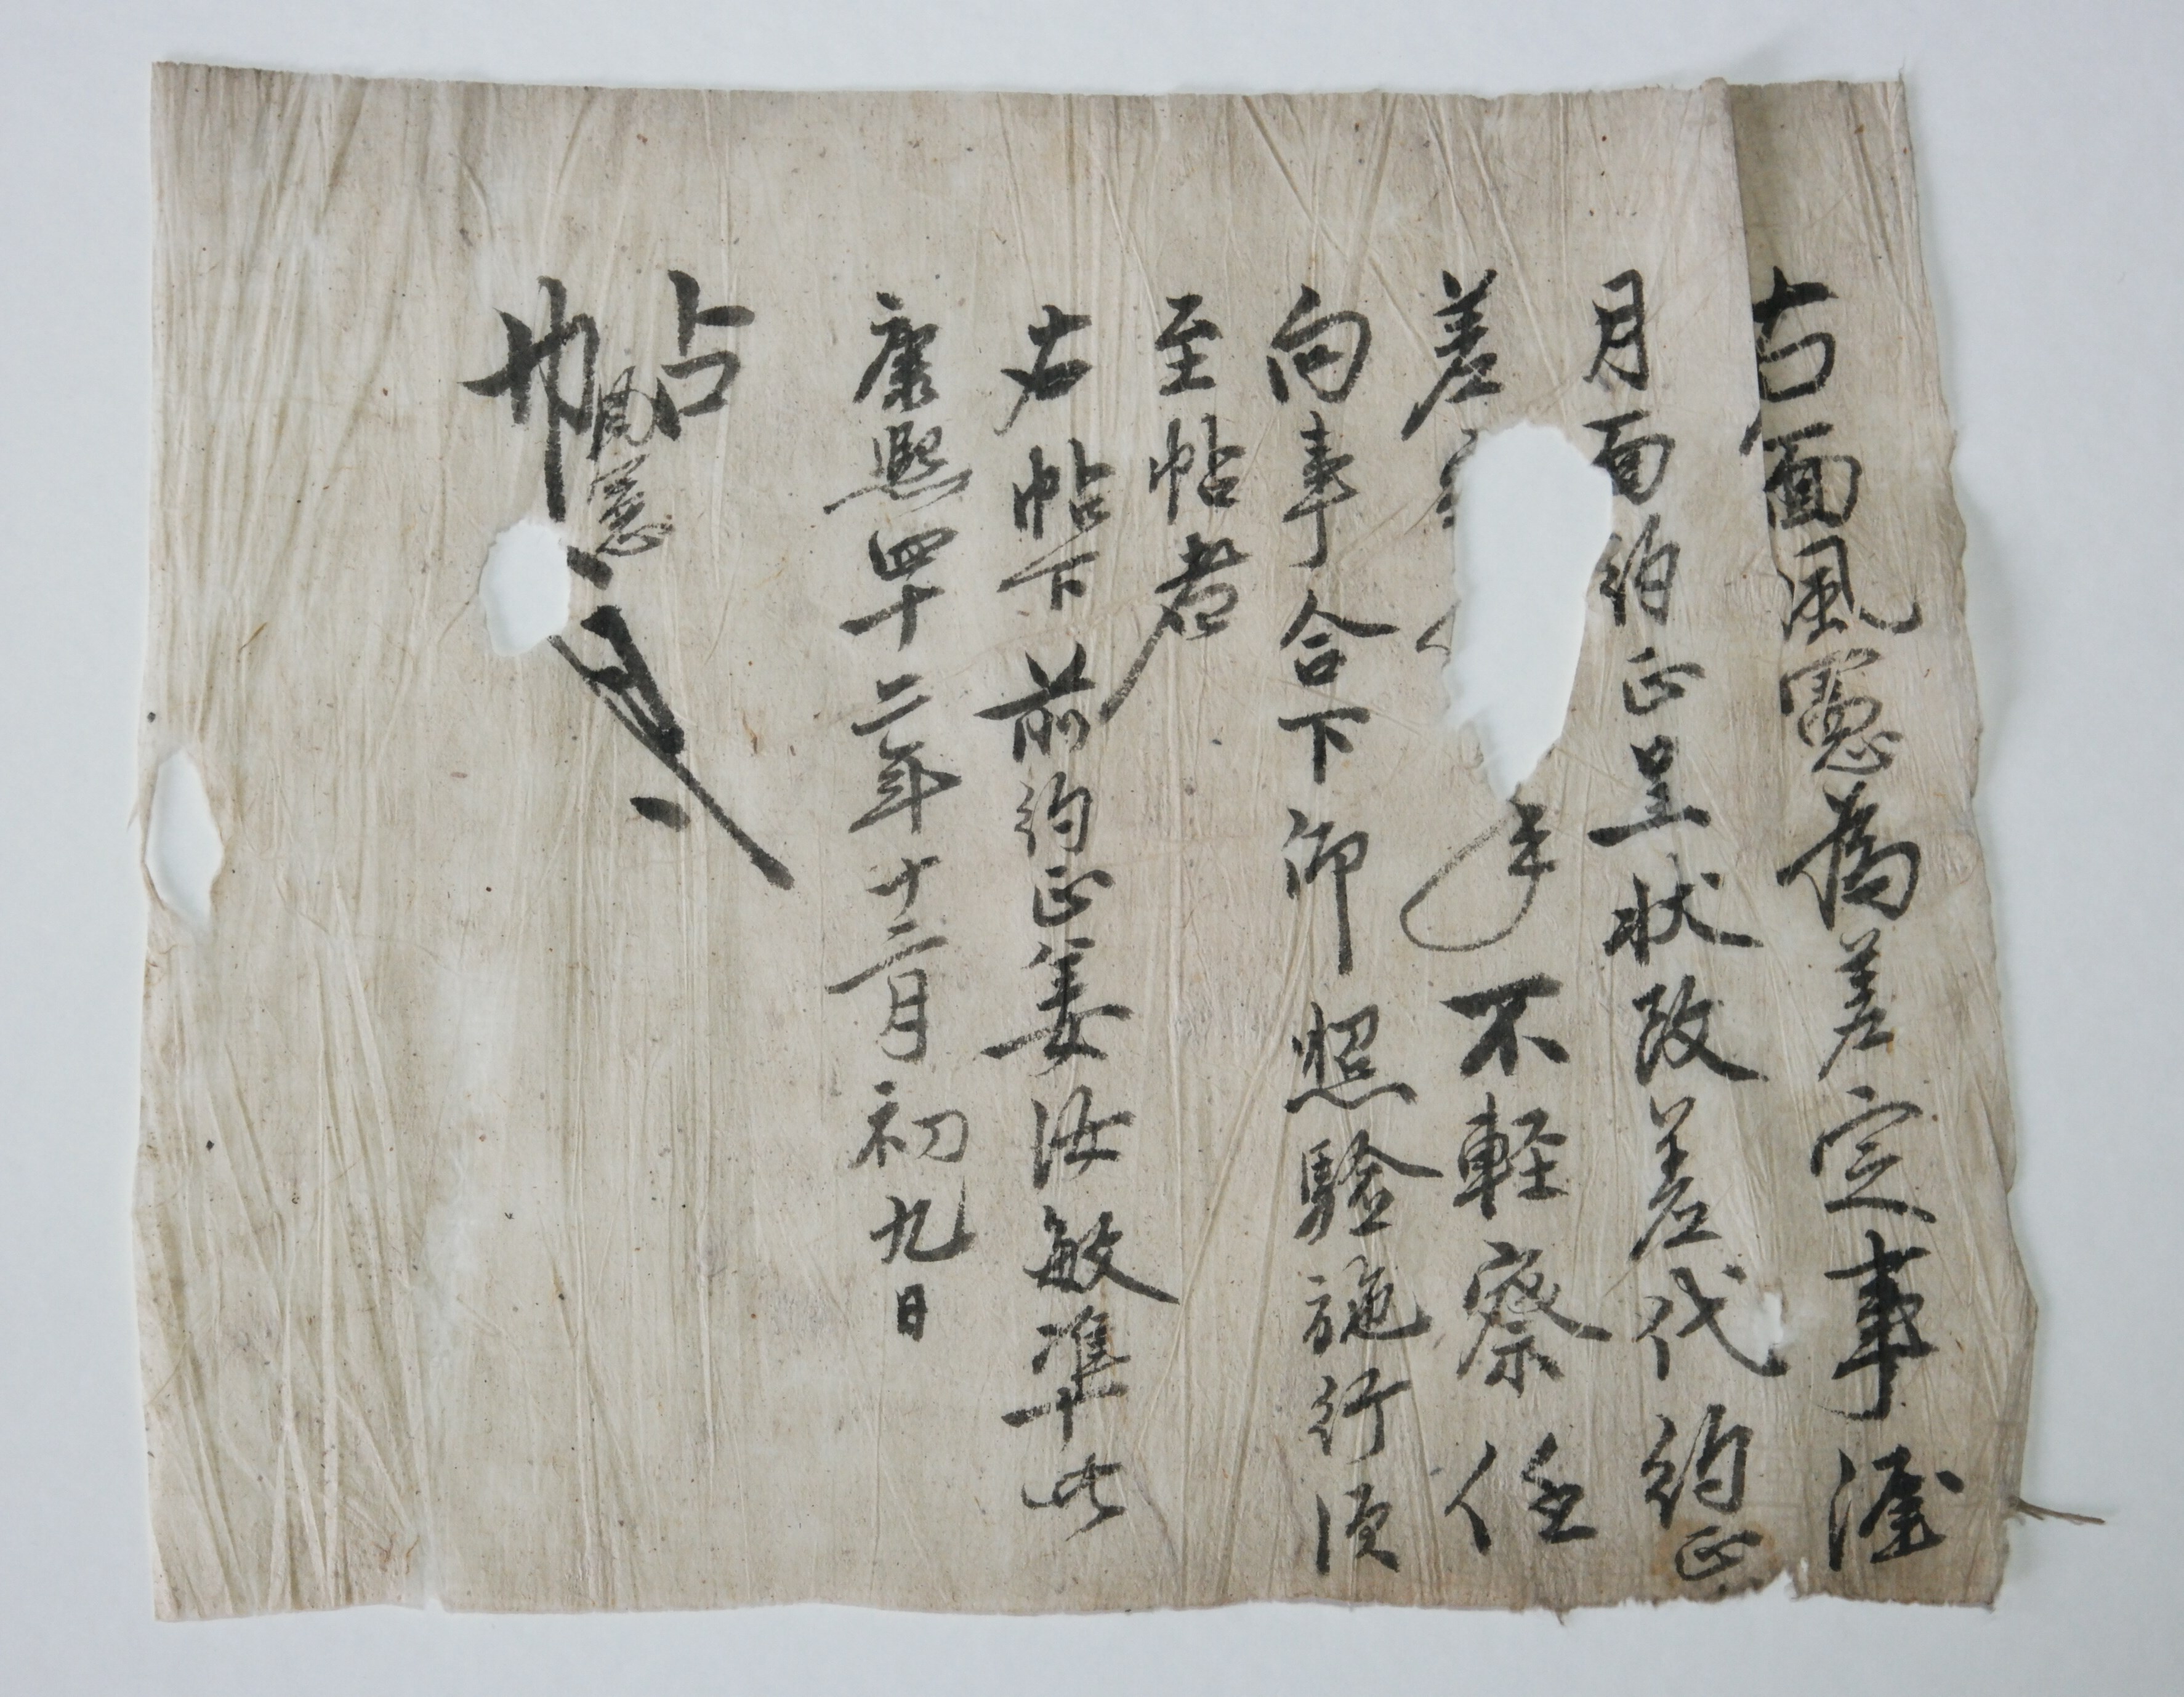 右面風憲爲差定事渥
月面約正呈狀改差代約正
差 不輕察任
向事合下仰照驗施行須
至帖者
右帖下前約正姜汝敏準此
康熙四十二年十二月初九日
帖
風憲